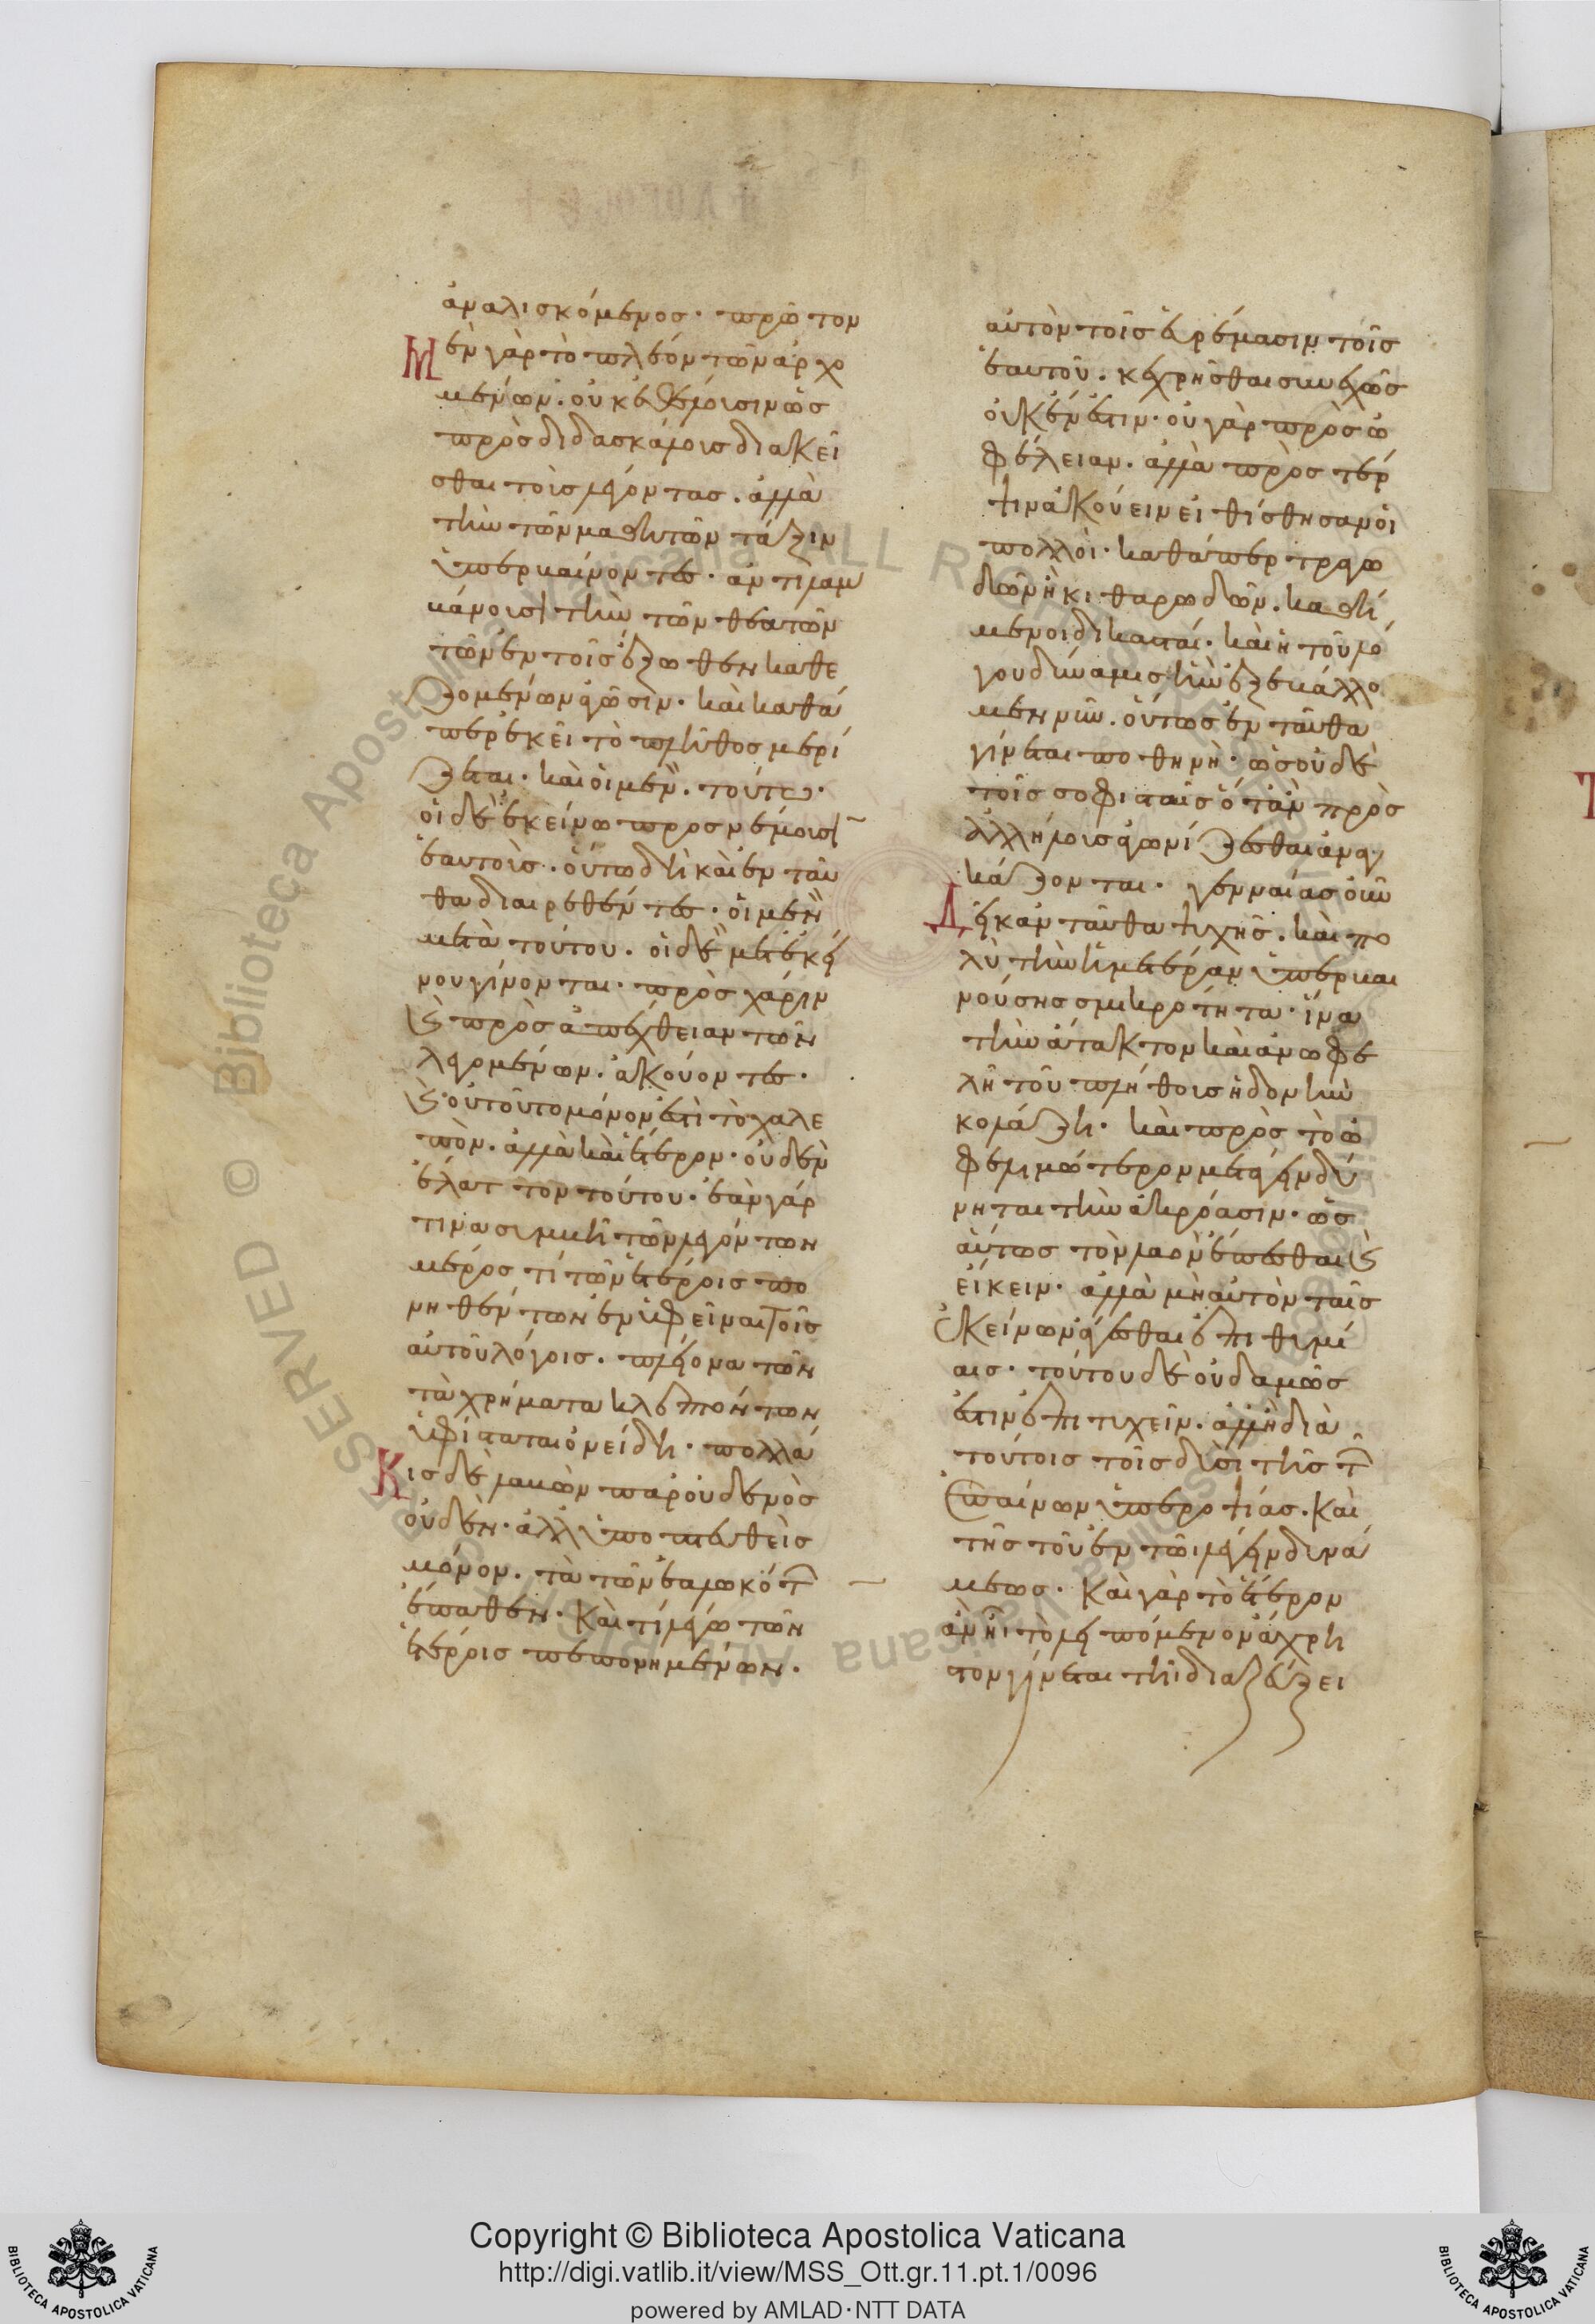 ἀναλισκόμενος· πρῶτον
Μὲν γὰρ τὸ πλέον τῶν ἀρχο
μένων· οὐκ ἐθέλουσιν ὡς
πρὸς διδασκάλους διακεῖ
σθαι τοὺς λέγοντας. ἀλλὰ
τὴν τῶν μαθητῶν τάξιν
ὑπερβαίνοντες· ἀντιλαμ
βάνουσι τὴν τῶν θεατῶν
τῶν ἐν τοῖς ἔξωθεν καθε
ζομένων ἀγῶσιν· καὶ καθά
περ ἐκεῖ τὸ πλῆθος μερί
ζεται· καὶ οἱ μὲν. τούτω·
οἱ δὲ ἐκείνω προσνέμουσι
ἑαυτοὺς. οὕτω δὴ καὶ ἐνταῦ
θα διαιρεθέντες· οἱ μὲν
μετὰ τούτου. οἱ δὲ μετ ἐκεί
νου γίνονται· πρὸς χάριν
καὶ πρὸς ἀπέχθειαν τῶν
λεγομένων. ἀκούοντες·
καὶ οὐ τοῦτο μόνον ἐστὶ τὸ χαλε
πόν. ἀλλὰ καὶ ἕτερον· οὐδὲν
ἔλαττον τούτου· ἐὰν γάρ
τινα συμβῆ τῶν λεγόντων
μέρος τί τῶν ἑτέροις πο
νηθέντων ἐνυφεῖναι τοῖς
αὐτοῦ λόγοις. πλείονα τῶν
τὰ χρήματα κλεπτόντων
ὑφίσταται ὀνείδη· πολλά
Κις δὲ λαβὼν παρ οὐδενὸς
οὐδὲν· ἀλλ ὑποπτευθεὶς
μόνον. τὰ τῶν ἑαλωκότ
ἔπαθεν. Καὶ τί λέγω τῶν
ἑτέροις πεπονημένων.
αὐτὸν τοῖς εὑρέμασιν τοῖς
ἑαυτοῦ. κεχρῆσθαι συνεχῶς
οὐκ ἔνεστιν· οὐ γὰρ πρὸς ὠ
φέλειαν. ἀλλὰ πρὸς τέρ
ψιν ἀκούειν εἰθίσθησαν οἱ
πολλοὶ· καθάπερ τραγω
δῶν ἢ κιθαρωδῶν. καθή
μενοι δικασταί· καὶ ἡ τοῦ λό
γου δύναμις ἣν ἐξεβάλλο
μεν νῦν. οὕτως ἐνταῦθα
γίνεται ποθηνὴ· ὡς οὐδὲ
τοῖς σοφισταῖς ὅτ ἂν πρὸς
ἀλλήλους ἀγωνίζεσθαι ἀναγ
κάζονται· γενναίας οὖν
Δεῖ κἀνταῦθα ψυχῆς. καὶ πο
λὺ τὴν ἡμετέραν ὑπερβαι
νούσης σμικρότητα· ἵνα
τὴν ἄτακτον καὶ ἀνωφε
λῆ τοῦ πλήθους ἡδονὴν
κολάζη· καὶ πρὸς τὸ ὠ
φελιμώτερον μετάγειν δύ
νηται τὴν ἀκρόασιν· ὡς
αὐτως τὸν λαὸν ἕπεσθαι καὶ
εἴκειν· ἀλλὰ μὴ αὐτὸν ταῖς
ἐκείνων ἄγεσθαι ἐπιθυμί
αις· τούτου δὲ οὐδαμῶς
ἐστιν ἐπιτυχεῖν. ἀλλ ἢ διὰ
τούτοις τοῖς δυσὶ τῆς τ
ἐπαίνων ὑπεροψίας. καὶ
τῆς τοῦ ἐν τῶ λέγειν δυνά
μεως· Καὶ γὰρ τὸ ἕτερον
ἂν ῆι τὸ λειπόμενον ἄχρη
στον γίνεται τῆ διαζεύξει